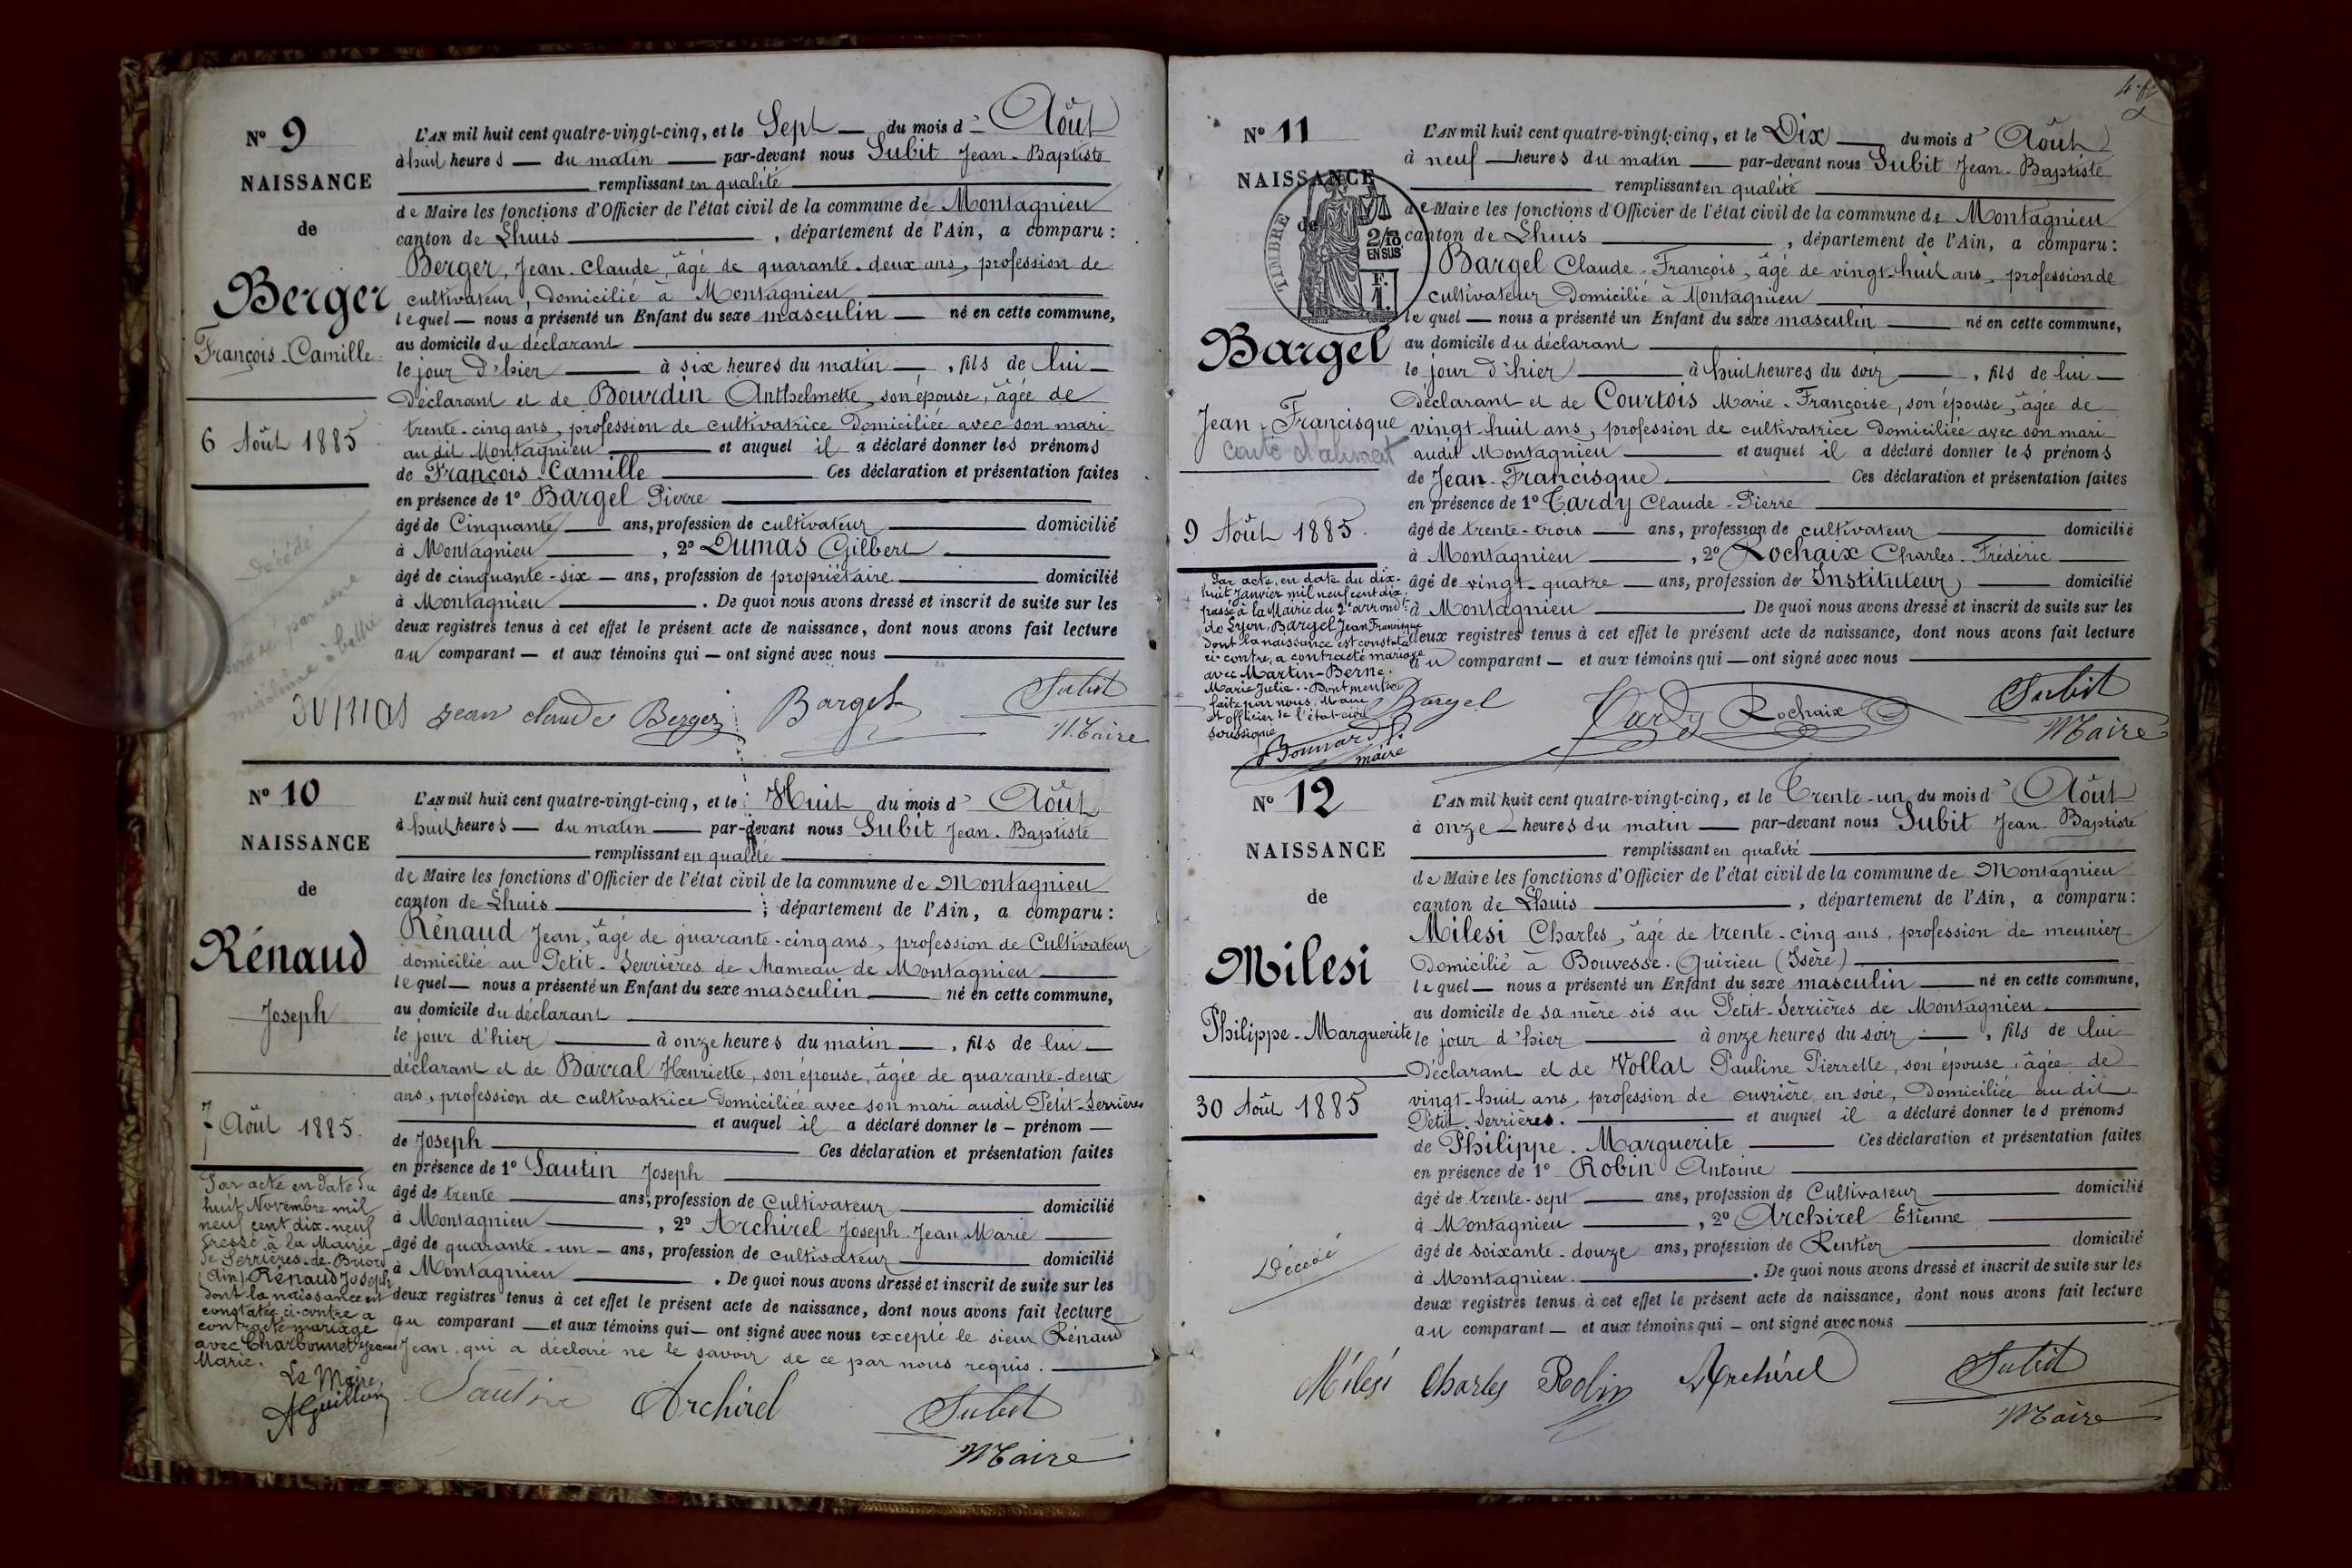 Nº 9
NAISSANCE
de
Berger
François-Camille
6 Août 1885
Décédé
L'AN mil huit cent quatre-vingt-cinq, et le Sept du mois d'Août
à huit heures du matin par-devant nous Subit Jean-Baptiste
remplissant en qualité
de Maire les fonctions d'Officier de l'état civil de la commune de Montagnieu
canton de Lhuis, département de l'Ain, a comparu :
Berger, Jean-Claude, âgé de quarante-deux ans, profession de
cultivateur, domicilié à Montagnieu
lequel nous a présenté un Enfant du sexe masculin né en cette commune,
au domicile du déclarant
le jour d'hier à six heures du matin, fils de lui
déclarant et de Bourdin Anthelmette, son épouse, âgée de
trente-cinq ans, profession de cultivatrice domiciliée avec son mari
audit Montagnieu et auquel il a déclaré donner les prénoms
de François-Camille Ces déclaration et présentation faites
en présence de 1º Bargel Pierre
âgé de Cinquante ans, profession de cultivateur domicilié
à Montagnieu, 2º Dumas Gilbert
âgé de cinquante-six ans, profession de propriétaire domicilié
à Montagnieu. De quoi nous avons dressé et inscrit de suite sur les
deux registres tenus à cet effet le présent acte de naissance, dont nous avons fait lecture
au comparant et aux témoins qui ont signé avec nous
Dumas Jean Claude Berger Bargel Subit
Maire
Nº 10
NAISSANCE
de
Rénaud
Joseph
7 Août 1885.
Par acte en date du
huit Novembre mil
neuf cent dix-neuf
dressé à la Mairie
de Serrières-de-Briord
(Ain) Rénaud Joseph
dont la naissance est
constatée ci-contre a
contracté mariage
avec Charbonnet Jeanne
Marie.
Le Maire,
AGuillon
L'AN mil huit cent quatre-vingt-cinq, et le Huit du mois d'Août
à huit heures du matin par-devant nous Subit Jean-Baptiste
remplissant en qualité
de Maire les fonctions d'Officier de l'état civil de la commune de Montagnieu
canton de Lhuis, département de l'Ain, a comparu :
Rénaud Jean, âgé de quarante-cinq ans, profession de Cultivateur
domicilié au Petit-Serrières de hameau de Montagnieu
lequel nous a présenté un Enfant du sexe masculin né en cette commune,
au domicile du déclarant
le jour d'hier à onze heures du matin, fils de lui
déclarant et de Barral Henriette, son épouse, âgée de quarante-deux
ans, profession de cultivatrice domiciliée avec son mari audit Petit-Serrières
et auquel il a déclaré donner le prénom
de Joseph Ces déclaration et présentation faites
en présence de 1º Sautin Joseph
âgé de trente ans, profession de Cultivateur domicilié
à Montagnieu, 2º Archirel Joseph-Jean-Marie
âgé de quarante-un ans, profession de cultivateur domicilié
à Montagnieu. De quoi nous avons dressé et inscrit de suite sur les
deux registres tenus à cet effet le présent acte de naissance, dont nous avons fait lecture
au comparant et aux témoins qui ont signé avec nous excepté le sieur Rénaud
Jean, qui a déclaré ne le savoir de ce par nous requis.
Sautin Archirel Subit
Maire
Nº 11
NAISSANCE
de
TIMBRE
2/10
EN SUS
F.
1.
Bargel
Jean-Francisque
9 Août 1885.
Par acte, en date du dix-
huit Janvier mil neuf cent dix,
passé à la Mairie du 2e arrondt
de Lyon, Bargel Jean Francisque
dont la naissance est constatée
ci-contre, a contracté mariage
avec Martin-Berne.
Marie Julie. Dont mention
faite par nous, Maire
et officier de l'état civil
soussigné
Bonnard
maire
L'AN mil huit cent quatre-vingt-cinq, et le Dix du mois d'Août
à neuf heures du matin par-devant nous Subit Jean-Baptiste
remplissant en qualité
de Maire les fonctions d'Officier de l'état civil de la commune de Montagnieu
canton de Lhuis, département de l'Ain, a comparu :
Bargel Claude-François, âgé de vingt-huit ans, profession de
cultivateur domicilié à Montagnieu
lequel nous a présenté un Enfant du sexe masculin né en cette commune,
au domicile du déclarant
le jour d'hier à huit heures du soir, fils de lui
déclarant et de Courtois Marie-Françoise, son épouse, âgée de
vingt-huit ans, profession de cultivatrice domiciliée avec son mari
audit Montagnieu et auquel il a déclaré donner les prénoms
de Jean-Francisque Ces déclaration et présentation faites
en présence de 1º Tardy Claude-Pierre
âgé de trente-trois ans, profession de cultivateur domicilié
à Montagnieu, 2º Rochaix Charles-Frédéric
âgé de vingt-quatre ans, profession de Instituteur domicilié
à Montagnieu. De quoi nous avons dressé et inscrit de suite sur les
deux registres tenus à cet effet le présent acte de naissance, dont nous avons fait lecture
au comparant et aux témoins qui ont signé avec nous
Bargel Tardy Rochaix Subit
Maire
Nº 12
NAISSANCE
de
Milesi
Philippe-Marguerite
30 Août 1885
Décédé
L'AN mil huit cent quatre-vingt-cinq, et le Trente-un du mois d'Août
à onze heures du matin par-devant nous Subit Jean-Baptiste
remplissant en qualité
de Maire les fonctions d'Officier de l'état civil de la commune de Montagnieu
canton de Lhuis, département de l'Ain, a comparu :
Milesi Charles, âgé de trente-cinq ans, profession de meunier
domicilié à Bouvesse-Quirieu (Isère)
lequel nous a présenté un Enfant du sexe masculin né en cette commune,
au domicile de sa mère sis au Petit-Serrières de Montagnieu
le jour d'hier à onze heures du soir, fils de lui
déclarant et de Vollat Pauline Pierrette, son épouse, âgée de
vingt-huit ans, profession de ouvrière en soie, domiciliée audit
Petit-Serrières. et auquel il a déclaré donner les prénoms
de Philippe-Marguerite Ces déclaration et présentation faites
en présence de 1º Robin Antoine
âgé de trente-sept ans, profession de Cultivateur domicilié
à Montagnieu, 2º Archirel Etienne
âgé de soixante-douze ans, profession de Rentier domicilié
à Montagnieu. De quoi nous avons dressé et inscrit de suite sur les
deux registres tenus à cet effet le présent acte de naissance, dont nous avons fait lecture
au comparant et aux témoins qui ont signé avec nous
Milési Charles Robin Archirel Subit
Maire